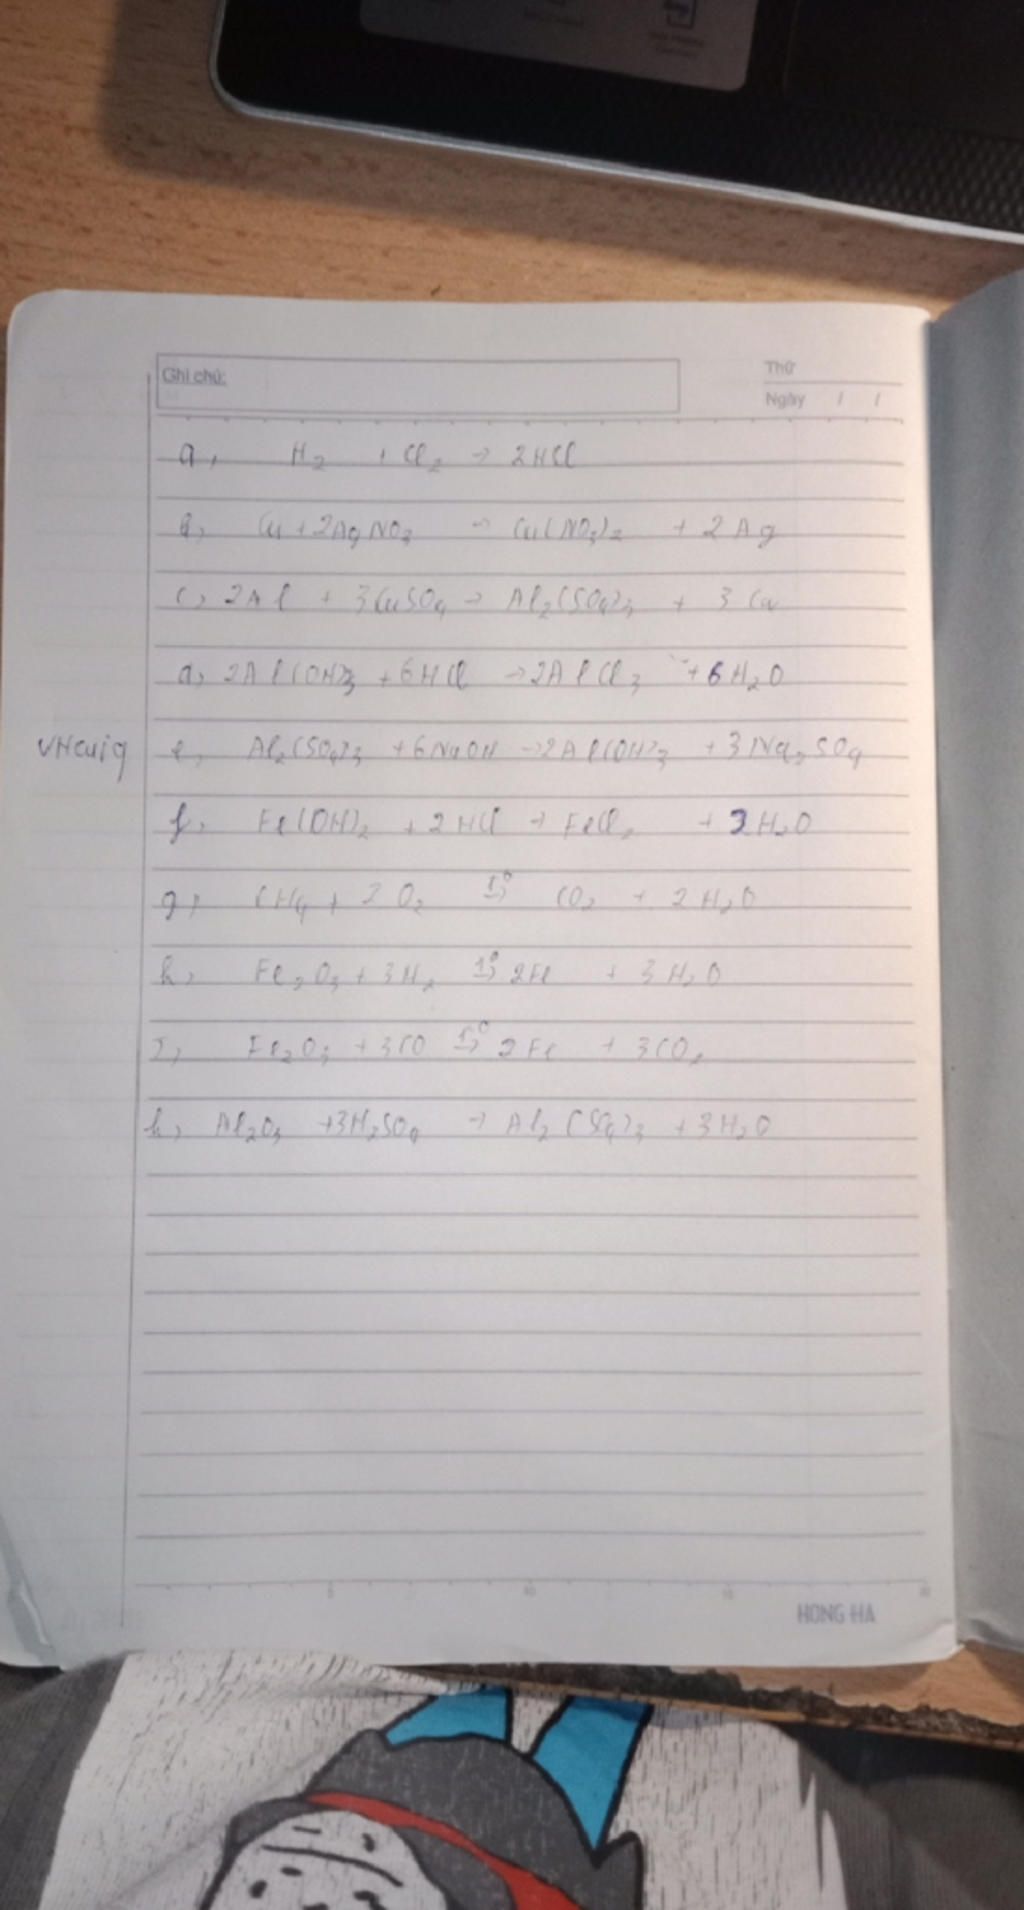 Ghi chú:
Thứ
Ngày / /
a, H2 + Cl2 → 2HCl
b, Cu + 2AgNO3 → Cu(NO3)2 + 2Ag
c, 2Al + 3CuSO4 → Al2(SO4)3 + 3Cu
d, 2Al(OH)3 + 6HCl → 2AlCl3 + 6H2O
VHcuiq
e, Al2(SO4)3 + 6NaOH → 2Al(OH)3 + 3Na2SO4
f, Fe(OH)2 + 2HCl → FeCl2 + 2H2O
g, CH4 + 2O2 t° → CO2 + 2H2O
h, Fe2O3 + 3H2 t° → 2Fe + 3H2O
i, Fe2O3 + 3CO t° → 2Fe + 3CO2
k, Al2O3 + 3H2SO4 → Al2(SO4)3 + 3H2O
5 10 15 20
HONG HA